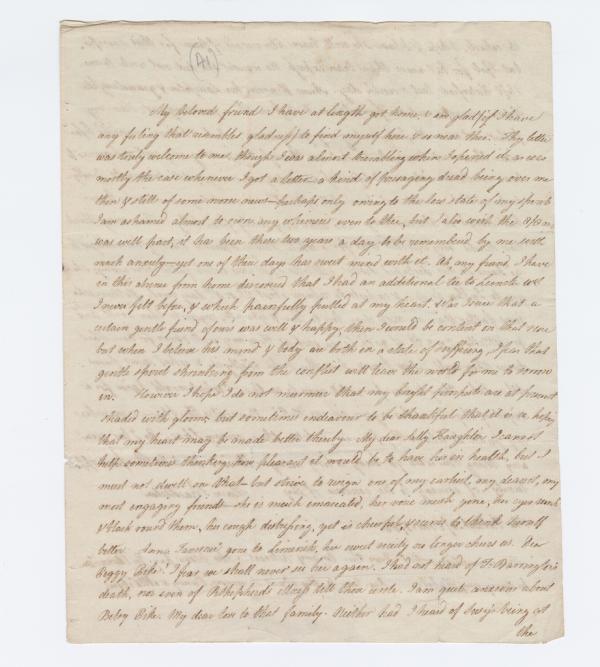 A1
My Beloved friend I have at length got home, & am glad (if I have
any feeling that resembles glad up) to find myself here & so near thee. Thy letter
was truly welcome to me, though I was almost trembling when I opened it, as is
mostly the case whenever I get a letter a kind of presaging dread being over me
then & still of some more news perhaps only owing to the low state of my spirits
I am ashamed almost to own my whimsies even to thee, but I also wish the
was well past, it has been these two years a day to be remembered by me with
much anxiety yet one of these days has sweet mixed with it. Ah, my friend, I have
in this absence from home discovered that I had an additional tie to
I never felt before, & which painfully pulled at my heart. Was I sure that a
certain gentle friend of ours was well & happy, then I would be content in that
but when I believe his mind & body are both in a state of suffering I fear that
gentle spirit shrinking from the conflict will leave the world for me to sorrow
in. However I hope I do not murmur that my bright prospects are at present
shaded with gloom, but sometimes endeavour to be thankful that it is so, hoping
that my heart may be made better thereby. My dear Sally Haughton I cannot
help sometimes thinking how pleasant it would be to have her in health, but I
must not dwell on that but strive to resign one of my earliest, my dearest, my
most engaging friends she is much emaciated, her voice much gone, her eyes sunk
& black round them, her cough distressing, yet is cheerful & seems to think herself
better. Anna gone to Limerick, her sweet society no longer cheers us. Dear
Peggy Pike! I fear we shall never see her again. I had not heard of T. Barrington's
death, nor even of R Shepherd's illness till thou wrote. I am quite anxious about
Betsy Pike. My dear love to that family. Neither had I heard of being at
the